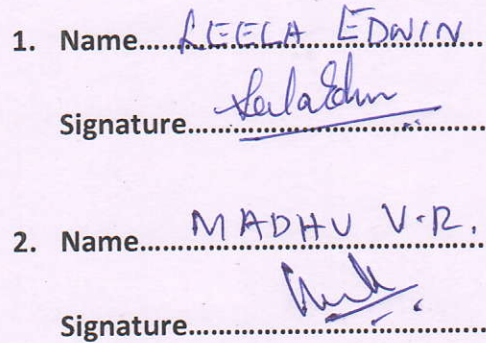 1. Name.....LEELA EDWIN
Signature.....Leela Edwin
2. Name.....MADHU V.R.
Signature.....